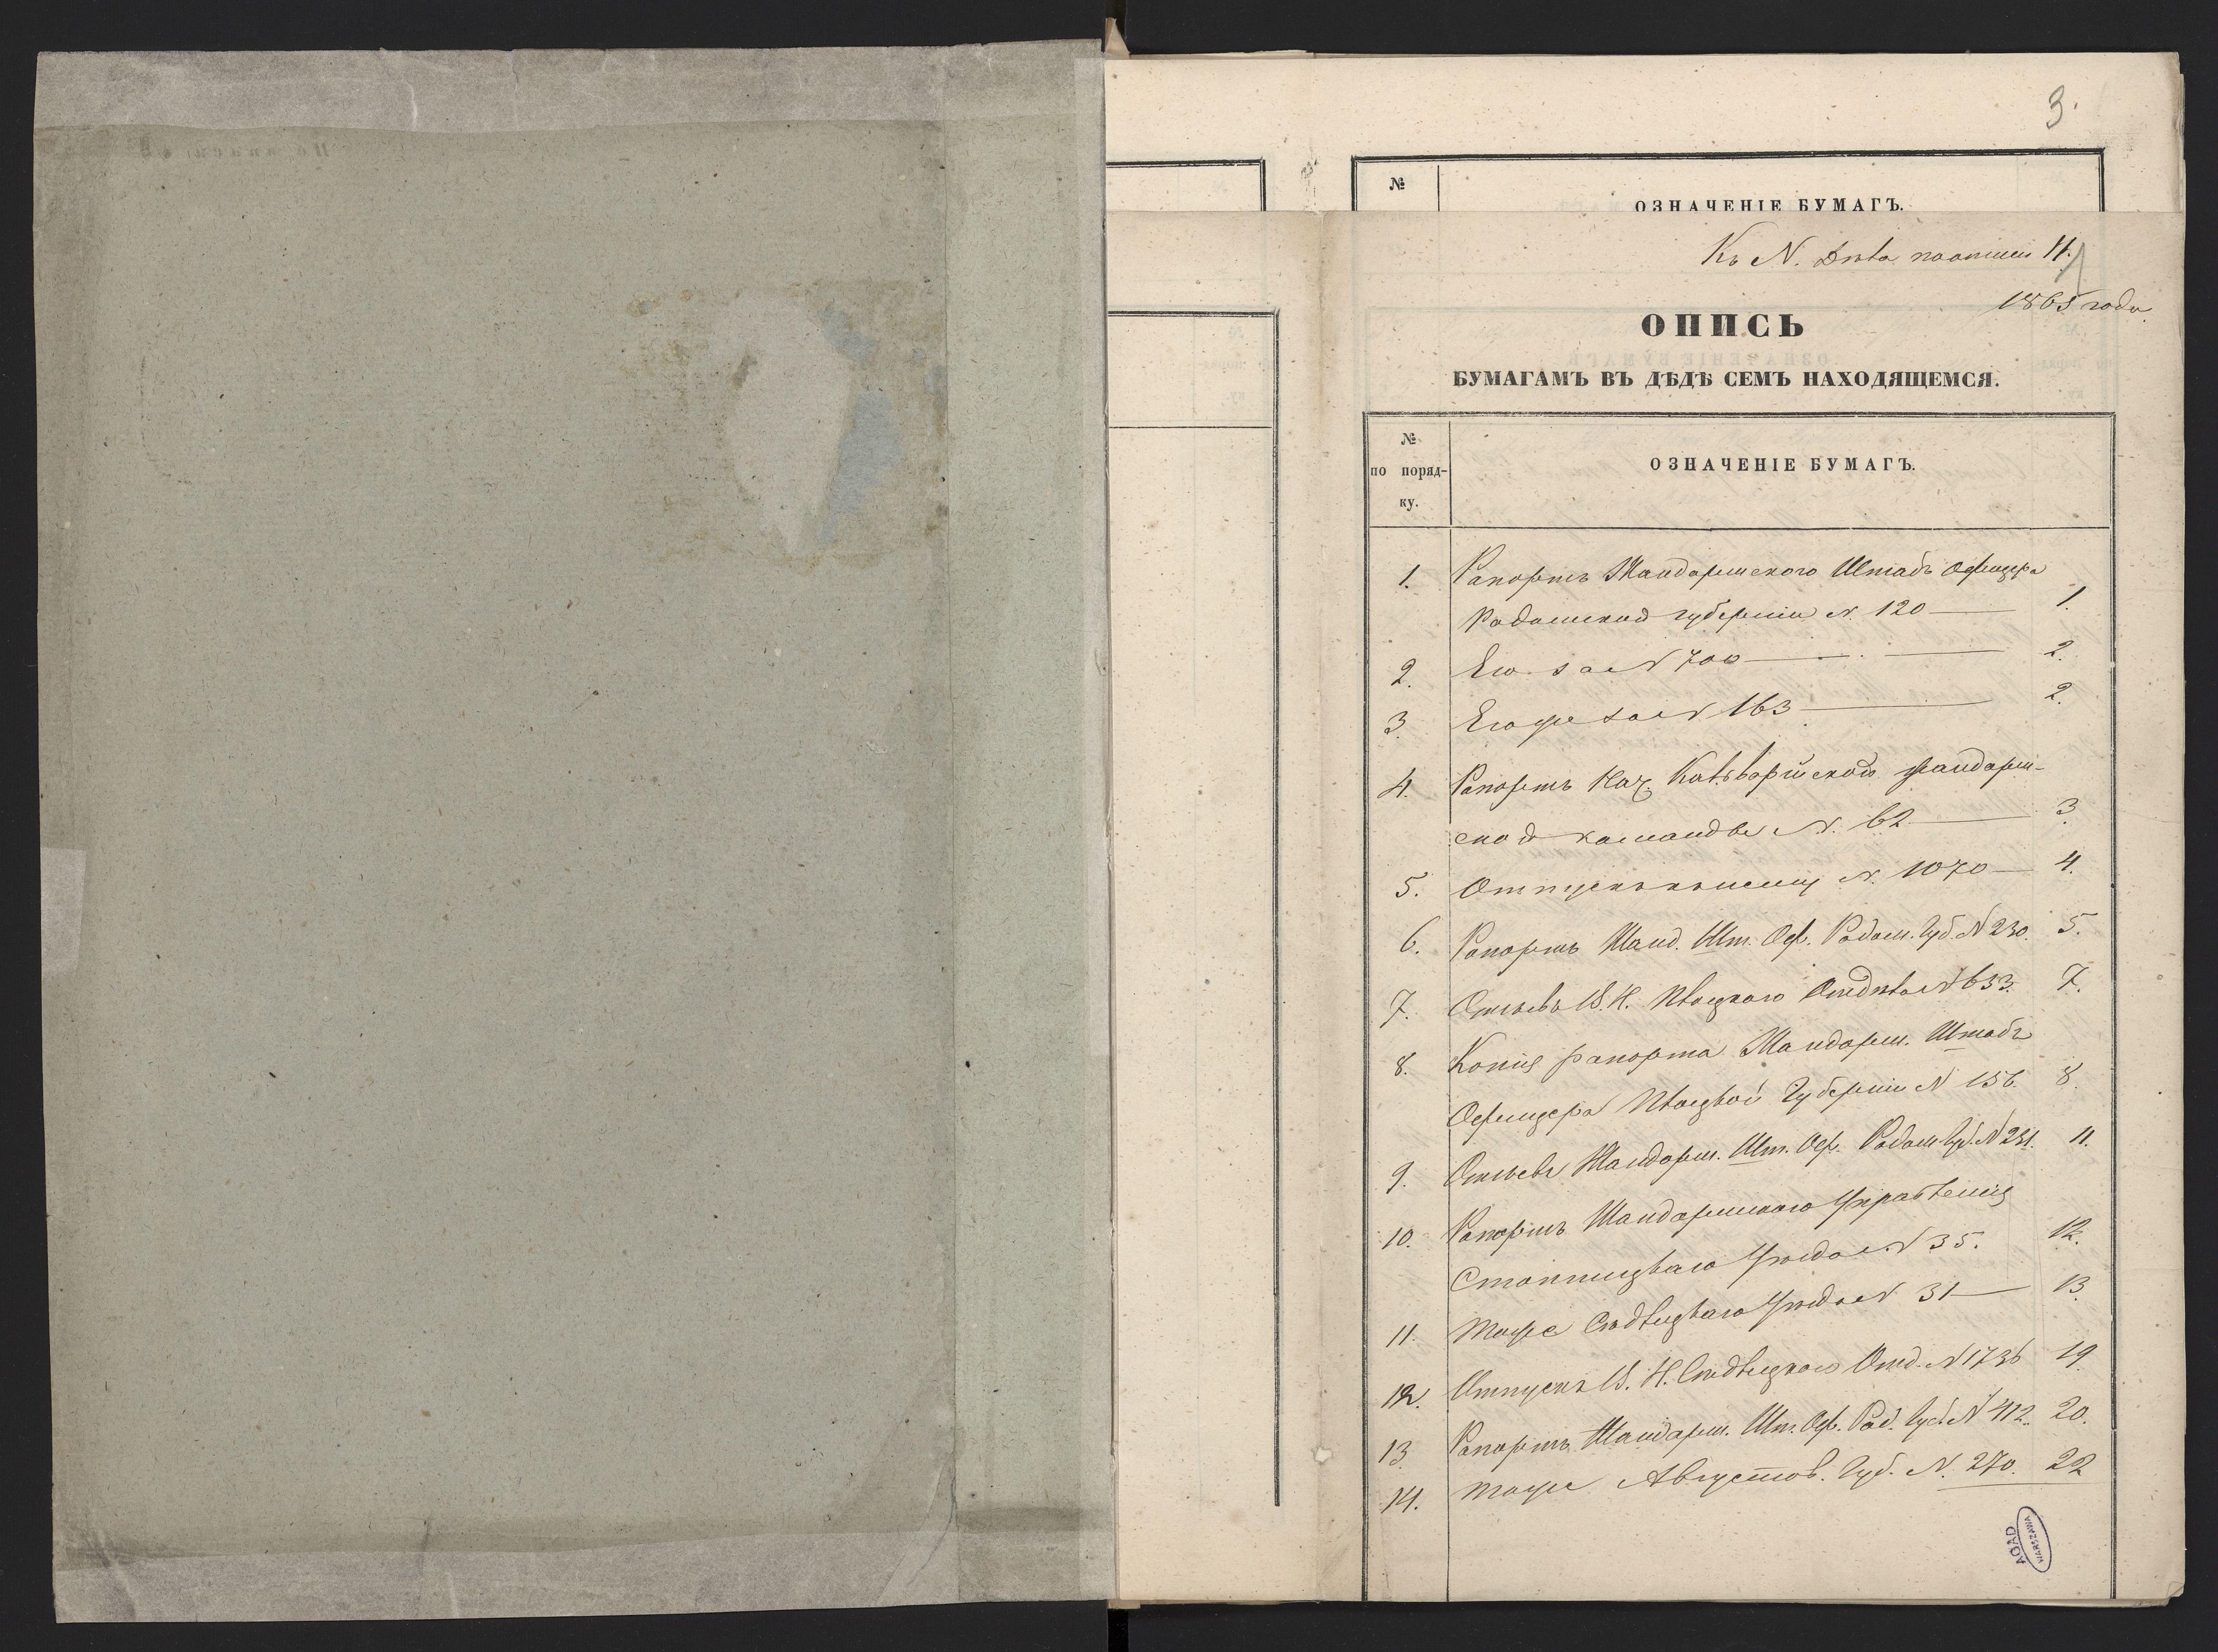 3.
№
ОЗНАЧЕНІЕ БУМАГЪ.
Къ N. Дѣла по описи 11.
1865 года.
ОПИСЬ
БУМАГАМЪ ВЪ ДѢДѢ СЕМЪ НАХОДЯЩЕМСЯ.
№
по поряд-
ку.
ОЗНАЧЕНІЕ БУМАГЪ.
1. Рапортъ Жандармскаго Штабъ Офицера
Радомской губерніи N. 120 — 1.
2. Его за N 700 — 2.
3. Его же за N 163 — 2.
4. Рапортъ Нач. Кальварійской жандарм-
ской команды N. 62 — 3.
5. Отпускъ къ нему N. 1070 — 4.
6. Рапортъ Жанд. Шт. Оф. Радом. Губ. N 230. 5.
7. Отзывъ В. Н. Плоцкаго Отдѣла N 633. 7.
8. Копія рапорта Жандарм. Штабъ
Офицера Плоцкой Губерніи N 156. 8.
9. Отзывъ Жандарм. Шт. Оф. Радом. Губ. N 231. 11.
10. Рапортъ Жандармскаго Управленія
Стопницкаго Уѣзда N 35. 12.
11. Тоже Сѣдлецкаго Уѣзда N 31 — 13.
12. Отпускъ В. Н. Сѣдлецкаго Отд. N 1736 19.
13. Рапортъ Жандарм. Шт. Оф. Рад. Губ. N 412. 20.
14. Тоже Августов. Губ. N. 270. 22
AGAD
WARSZAWA